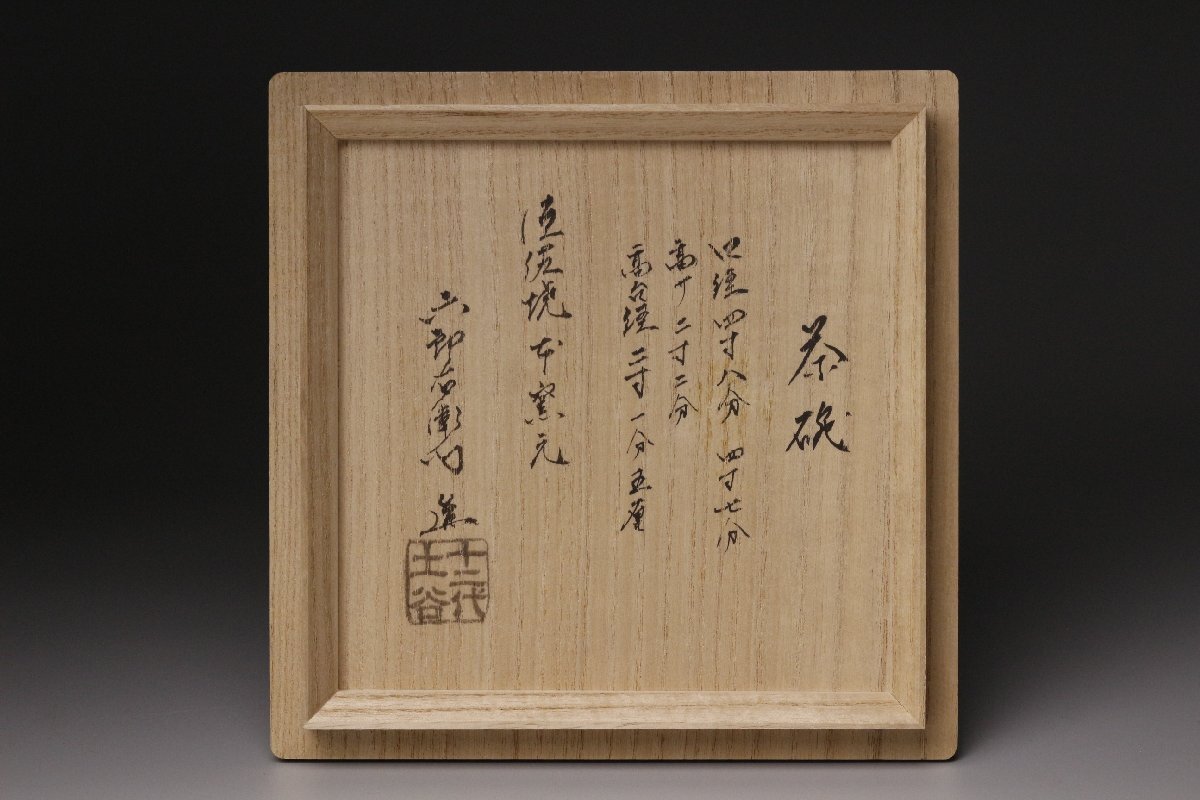 茶碗
口経四寸八分 四寸七分
高サ二寸二分
高台経二寸一分五厘
焼本窯元
六郎右衛門 造
十二代
土谷